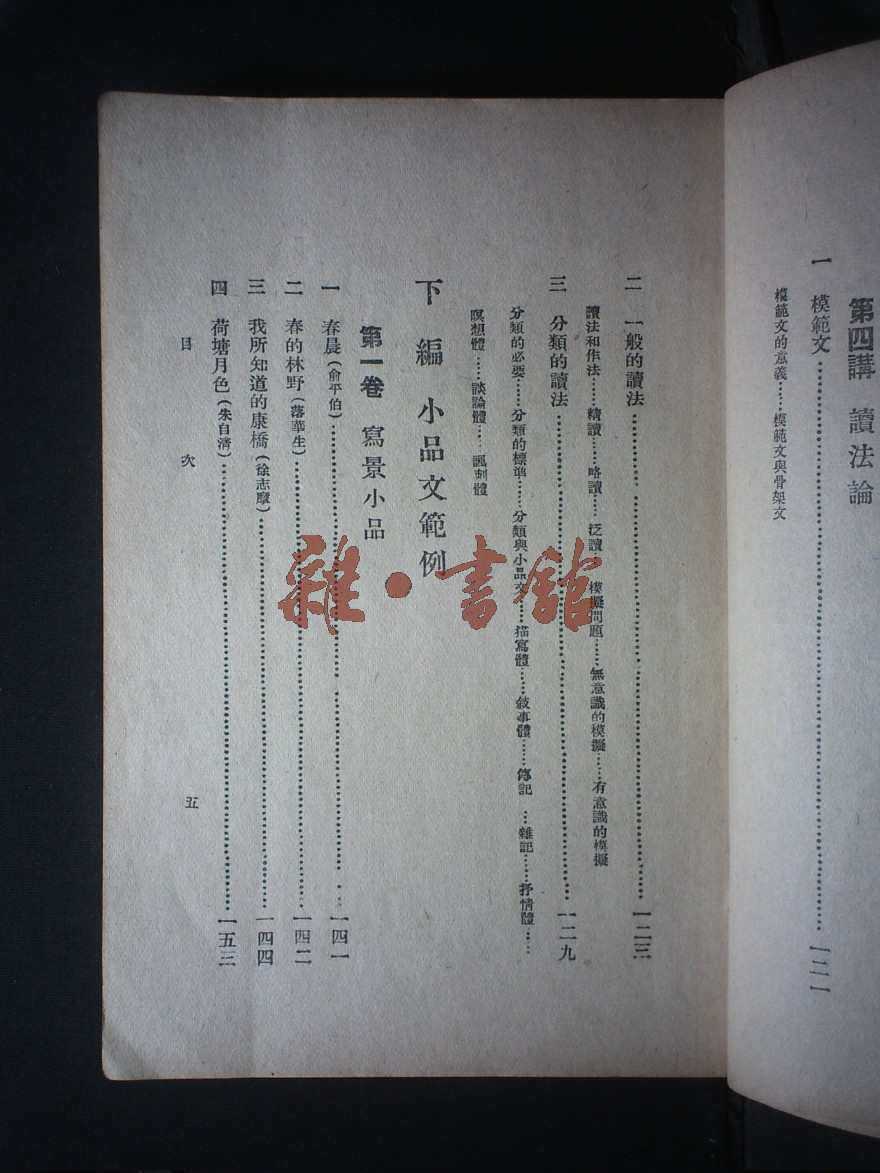 第四講 讀法論
一 模範文……一二一
模範文的意義……模範文與骨架文
二 一般的讀法……一二三
讀法和作法……精讀……略讀……泛讀……模擬問題……無意識的模擬……有意識的模擬
三 分類的讀法……一二九
分類的必要……分類的標準……分類與小品文……描寫體……敍事體……傳記……雜記……抒情體……
瞑想體……談論體……諷刺體
下編 小品文範例
第一卷 寫景小品
一 春晨(俞平伯)……一四一
二 春的林野(落華生)……一四二
三 我所知道的康橋(徐志摩)……一四四
四 荷塘月色(朱自清)……一五三
目次 五
雜·書館